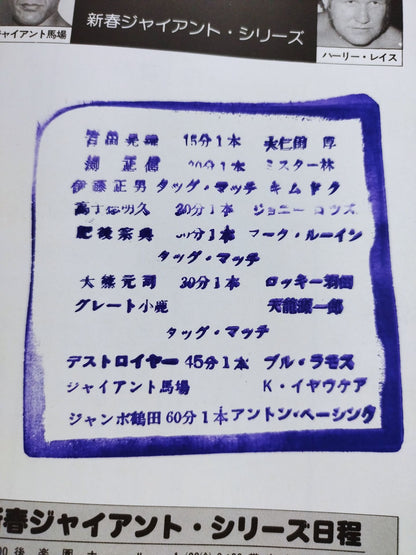 新春ジャイアント・シリーズ
ジャイアント馬場
ハーリー・レイス
15分1本 大仁田 厚
渕 正信 20分1本 ミスター林
伊藤正男 タッグ・マッチ キム・ドク
30分1本
肥後宗典 30分1本 マーク・ルーイン
タッグ・マッチ
大熊元司 30分1本 ロッキー羽田
グレート小鹿 天龍源一郎
タッグ・マッチ
デストロイヤー 45分1本 ブル・ラモス
ジャイアント馬場 K・イヤウケア
ジャンボ鶴田 60分1本 アントン・ヘーシンク
新春ジャイアント・シリーズ日程